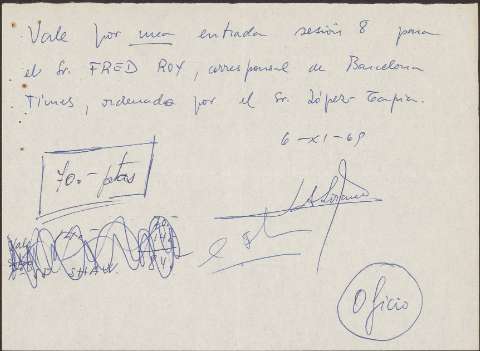 Vale por una entrada sesión 8 para
el Sr. FRED ROY, corresponsal de Barcelona
Times, ordenado por el Sr. López-Tapia.
6-XI-69
70.- ptas
Oficio